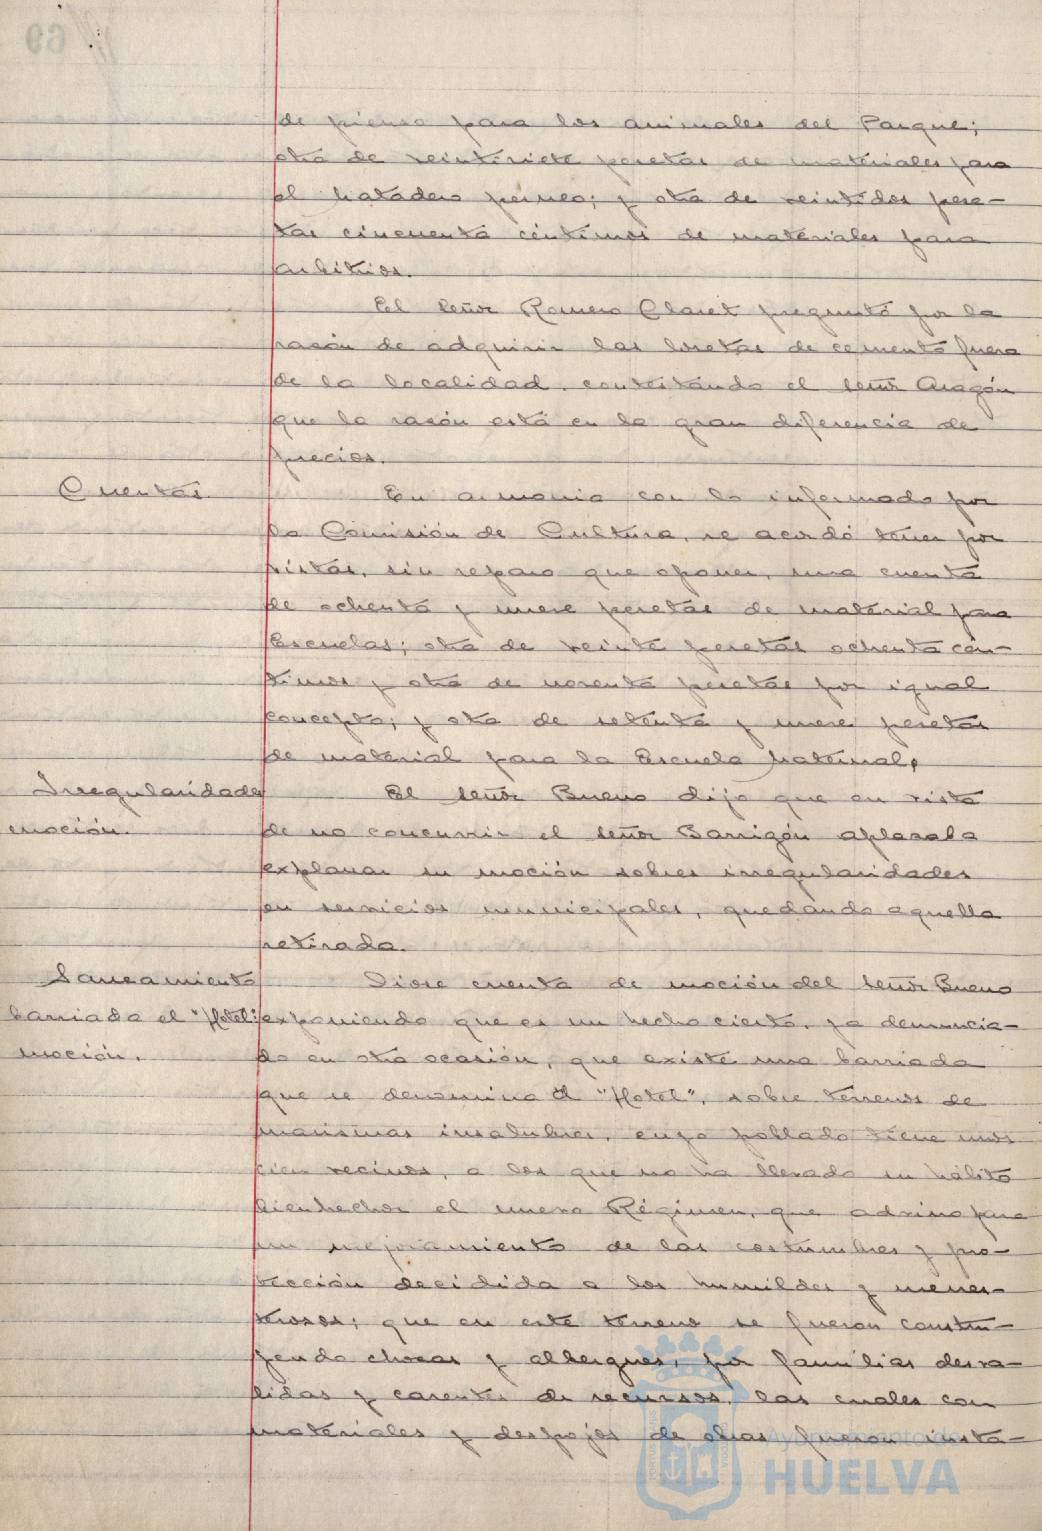 69
de pienso para los animales del Parque;
otra de veintisiete pesetas de materiales para
el Matadero pesetas; y otra de veintidos pese-
tas cincuenta céntimos de materiales para
arbitrios.
El Señor Romero Claret preguntó por la
razón de adquirir las losetas de cemento fuera
de la localidad, contestando el Señor Aragón
que la razón está en la gran diferencia de
precios.
Cuentas.
En armonia con lo informado por
la Comisión de Cultura, se acordó tener por
vistas, sin reparo que oponer, una cuenta
de ochenta y nueve pesetas de material para
Escuelas; otra de veinte pesetas ochenta cén-
timos y otra de noventa pesetas por igual
concepto; y otra de setenta y nueve pesetas
de material para la Escuela Maternal.
Irregularidades
moción.
El Señor Bueno dijo que en vista
de no concurrir el Señor Barrigón aplazaba
explanar su moción sobre irregularidades
en servicios municipales, quedando aquella
retirada.
Saneamiento
barriada el "Hotel":
moción.
Diose cuenta de moción del Señor Bueno
exponiendo que es un hecho cierto, ya denuncia-
do en otra ocasión, que existe una barriada
que se denomina el "Hotel", sobre terrenos de
marismas insalubres, cuyo poblado tiene unos
cien vecinos, a los que no ha llevado su hálito
bienhechor el nuevo Régimen, que advino para
un mejoramiento de las costumbres y pro-
tección decidida a los humildes y menes-
terosos; que en este terreno se fueron constru-
yendo chozas y albergues, por familias desva-
lidas y carentes de recursos, las cuales con
materiales y despojos de obras fueron insta-
Ayuntamiento de
HUELVA